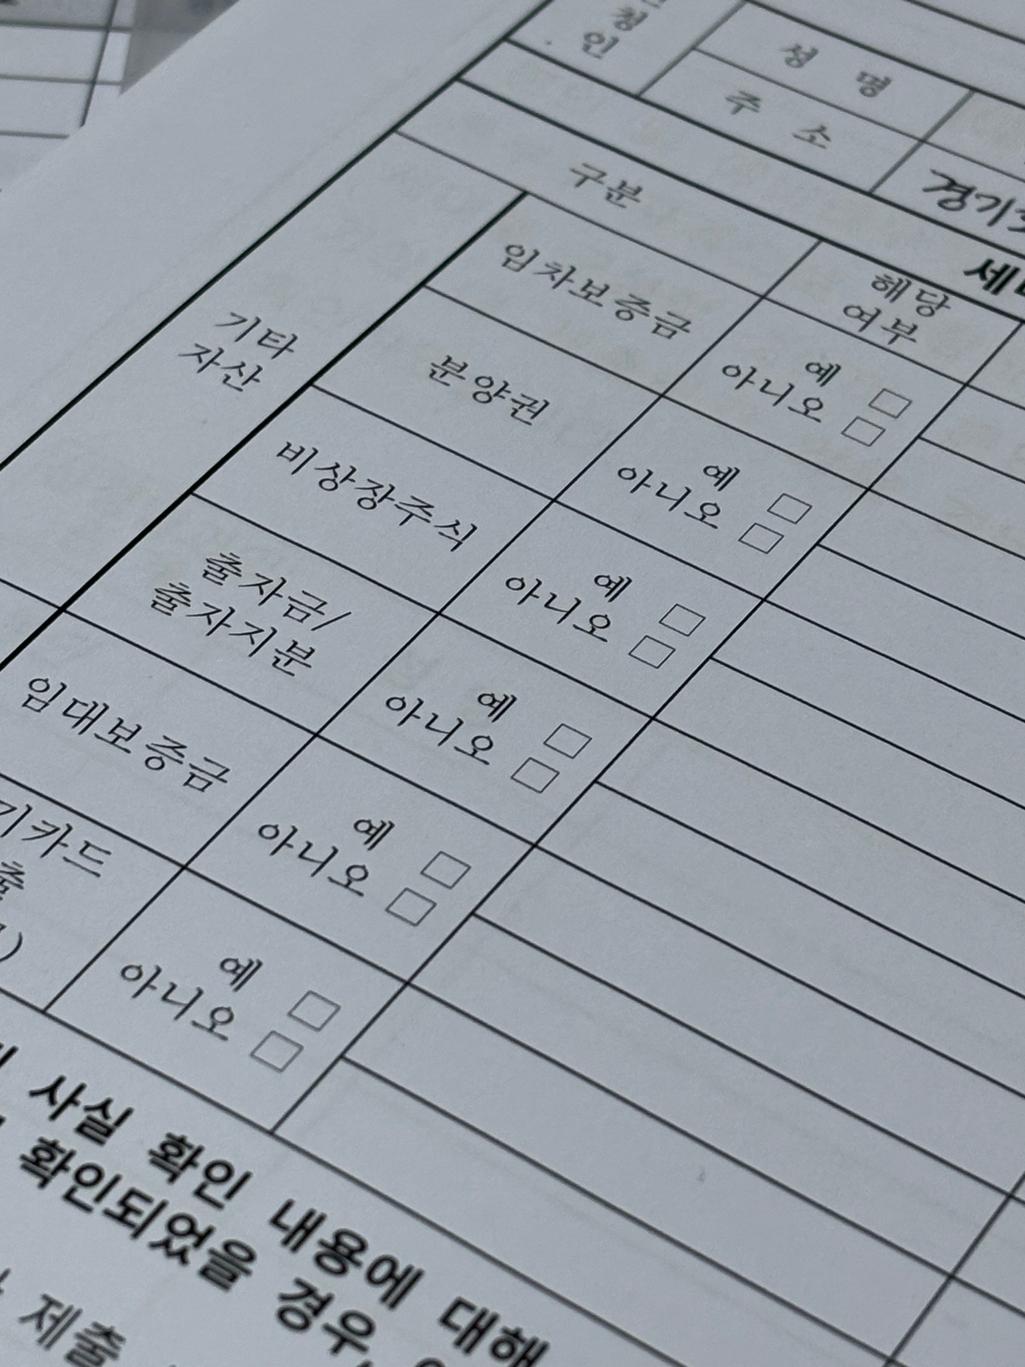 청
인
성 명
주 소
경기
세
구분
해당
여부
기타
자산
임차보증금
예 □
아니오 □
분양권
예 □
아니오 □
비상장주식
예 □
아니오 □
출자금/
출자지분
예 □
아니오 □
임대보증금
예 □
아니오 □
기카드
출
)
예 □
아니오 □
사실 확인 내용에 대해
확인되었을 경우,
제출